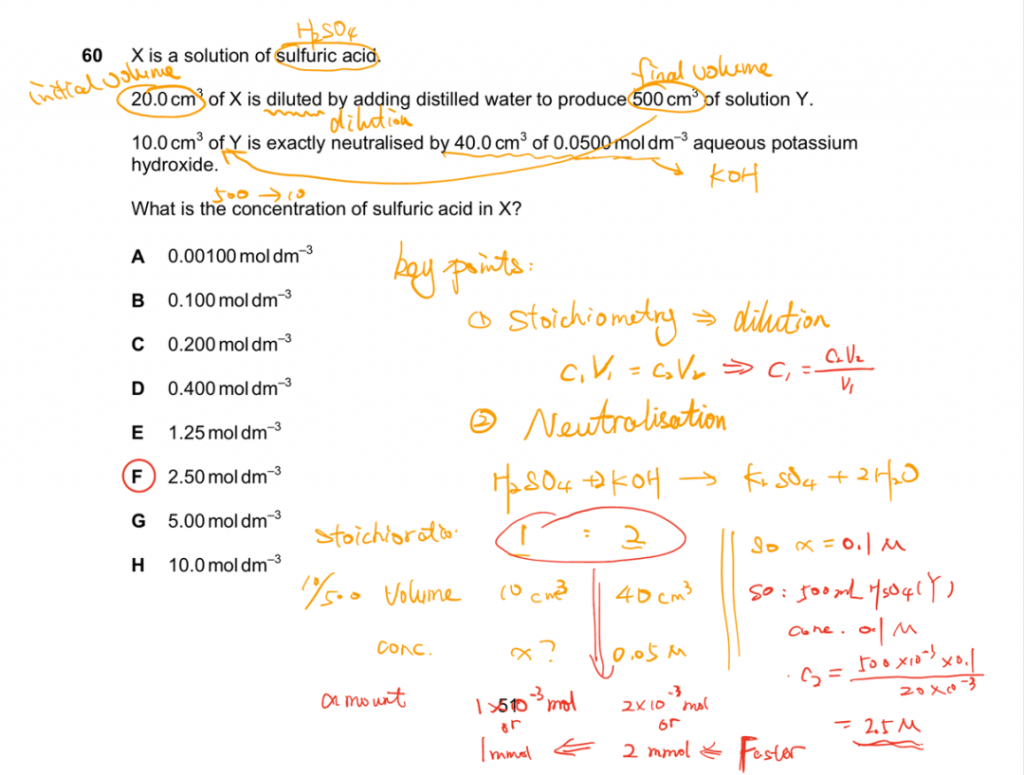 H₂SO₄
60 X is a solution of sulfuric acid.
initial volume
final volume
20.0 cm³ of X is diluted by adding distilled water to produce 500 cm³ of solution Y.
dilution
10.0 cm³ of Y is exactly neutralised by 40.0 cm³ of 0.0500 mol dm⁻³ aqueous potassium
hydroxide.
KOH
500 → 10
What is the concentration of sulfuric acid in X?
A 0.00100 mol dm⁻³
B 0.100 mol dm⁻³
C 0.200 mol dm⁻³
D 0.400 mol dm⁻³
E 1.25 mol dm⁻³
F 2.50 mol dm⁻³
G 5.00 mol dm⁻³
H 10.0 mol dm⁻³
key points:
① Stoichiometry ⇒ dilution
C₁V₁ = C₂V₂ ⇒ C₁ = C₂V₂ / V₁
② Neutralisation
H₂SO₄ + 2KOH → K₂SO₄ + 2H₂O
1 : 2
10/500 Volume 10 cm³ 40 cm³
conc. x? 0.05 M
amount 1×10⁻³ mol 2×10⁻³ mol
51
or or
1 mmol ⇐ 2 mmol ⇐ Faster
So x = 0.1 M
So: 500 mL H₂SO₄ (Y)
conc. 0.1 M
C₂ = 500×10⁻³ × 0.1 / 20×10⁻³
= 2.5 M